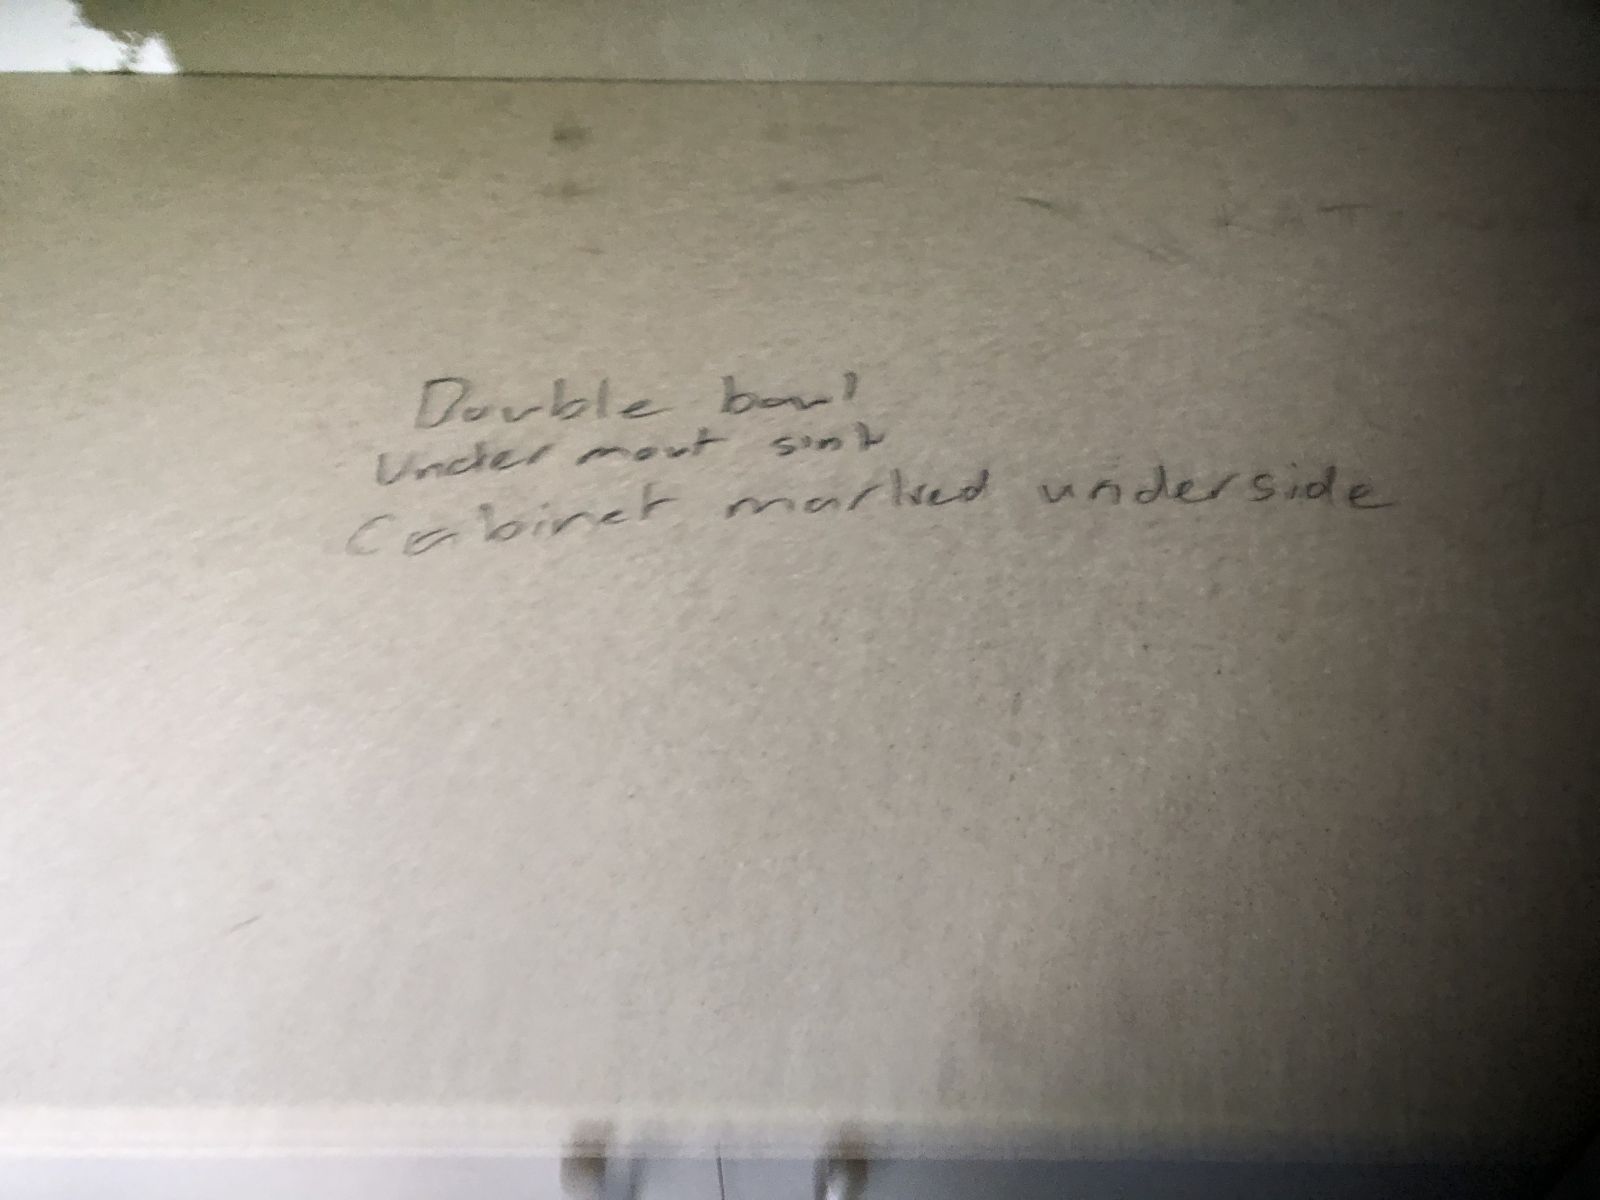 Double bowl
Under mout sink
Cabinet marked underside